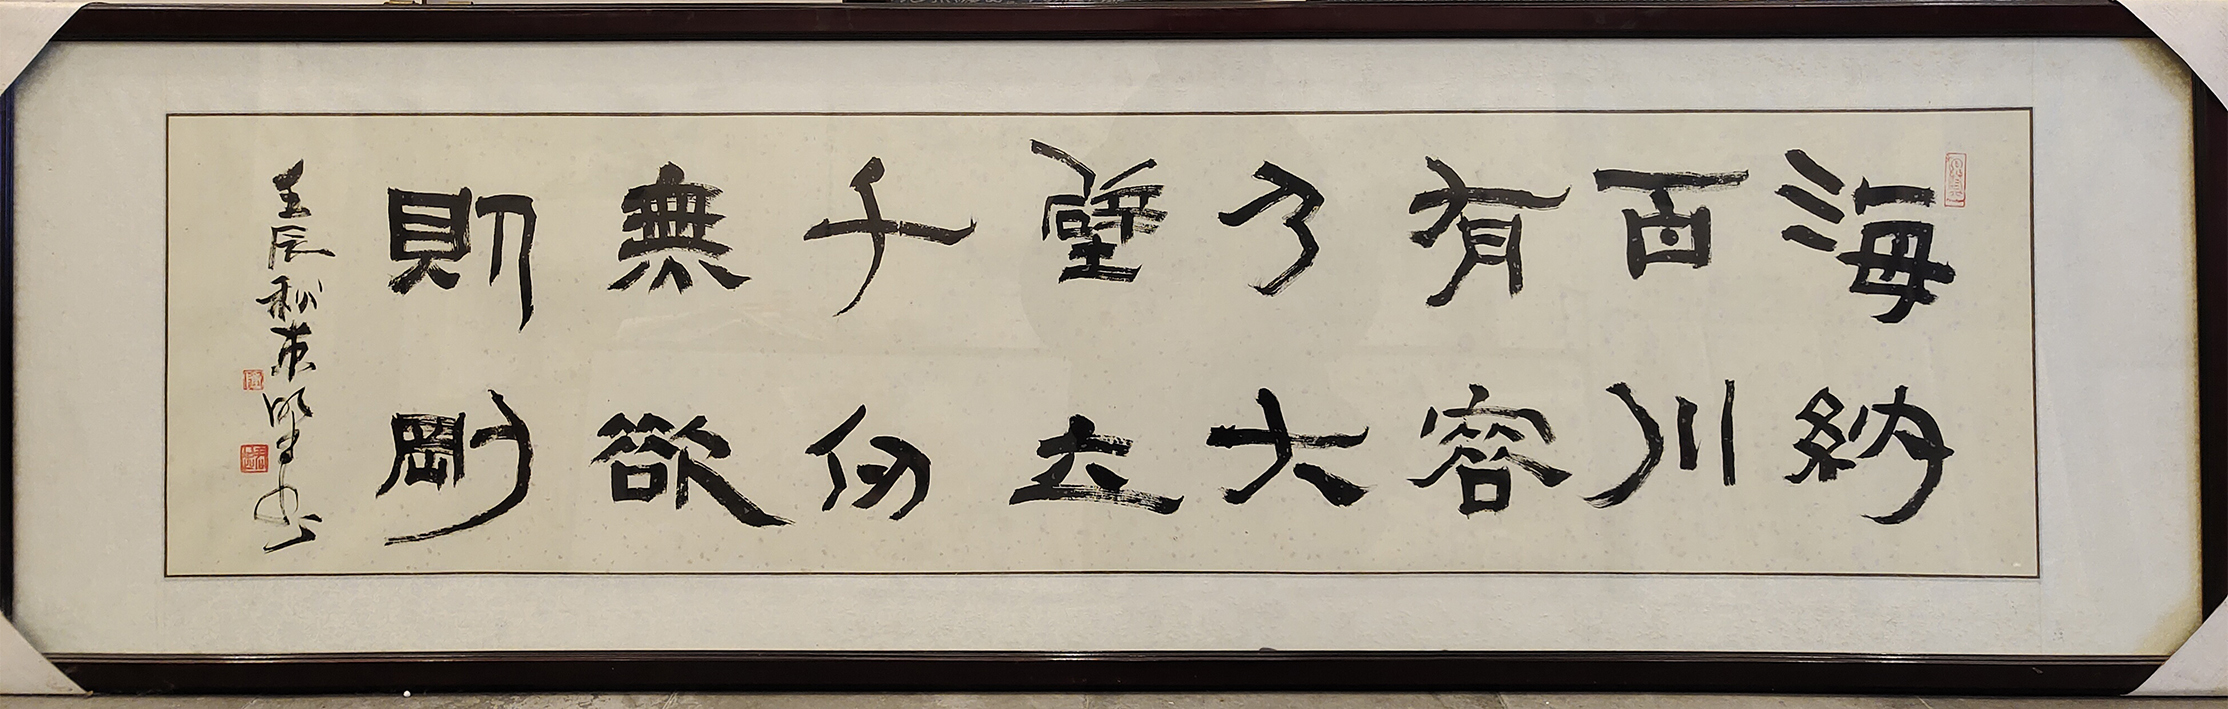 海納
百川
有容
乃大
壁立
千仞
無欲
則剛
壬辰秋书